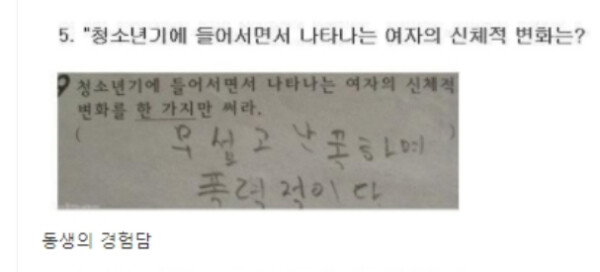 5. "청소년기에 들어서면서 나타나는 여자의 신체적 변화는?
9 청소년기에 들어서면서 나타나는 여자의 신체적
변화를 한 가지만 써라.
( 무섭고 난폭하며 )
폭력적이다
동생의 경험담